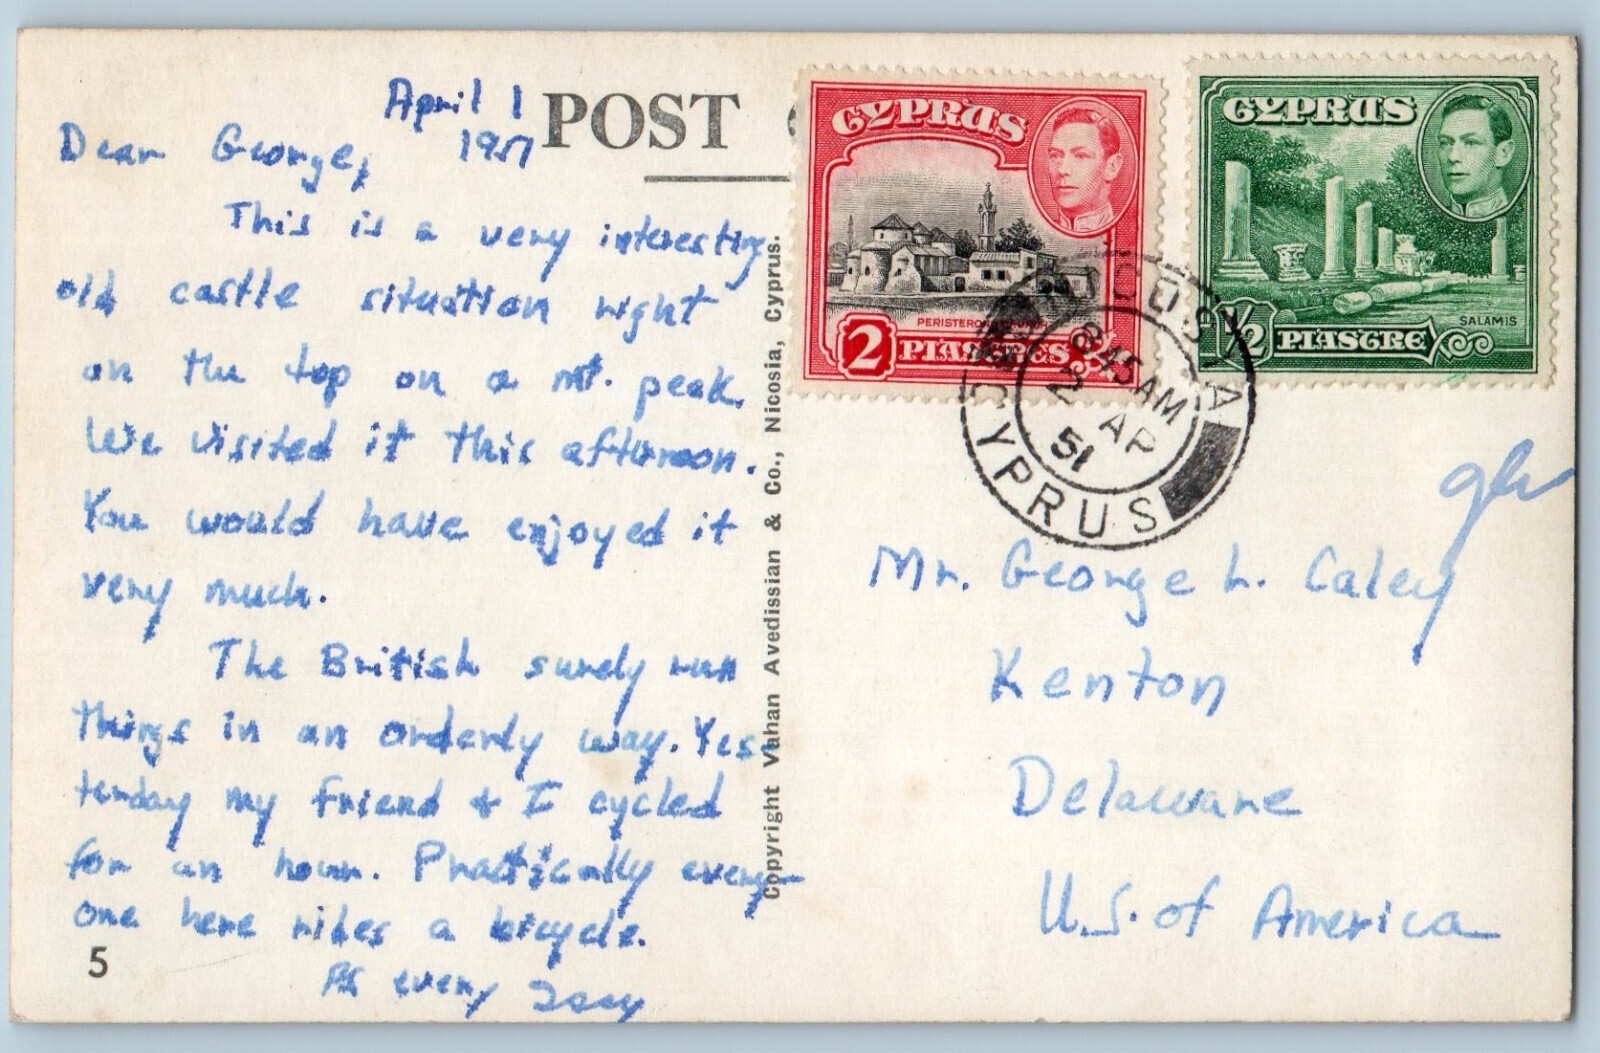 April 1
1951
Dear George,
This is a very interesting
old castle situation right
on the top on a mt. peak.
We visited it this afternoon.
You would have enjoyed it
very much.
The British surely run
things in an orderly way. Yes
terday my friend & I cycled
for an hour. Practically every-
one here rides a bicycle.
As every
5
POST
Copyright Vahan Avedissian & Co., Nicosia, Cyprus.
CYPRUS
PERISTERONA CHURCH
2 PIASTRES
CYPRUS
SALAMIS
1/2 PIASTRE
NICOSIA
845AM
2 AP
51
CYPRUS
Mr. George L. Caley
Kenton
Delaware
U.S. of America